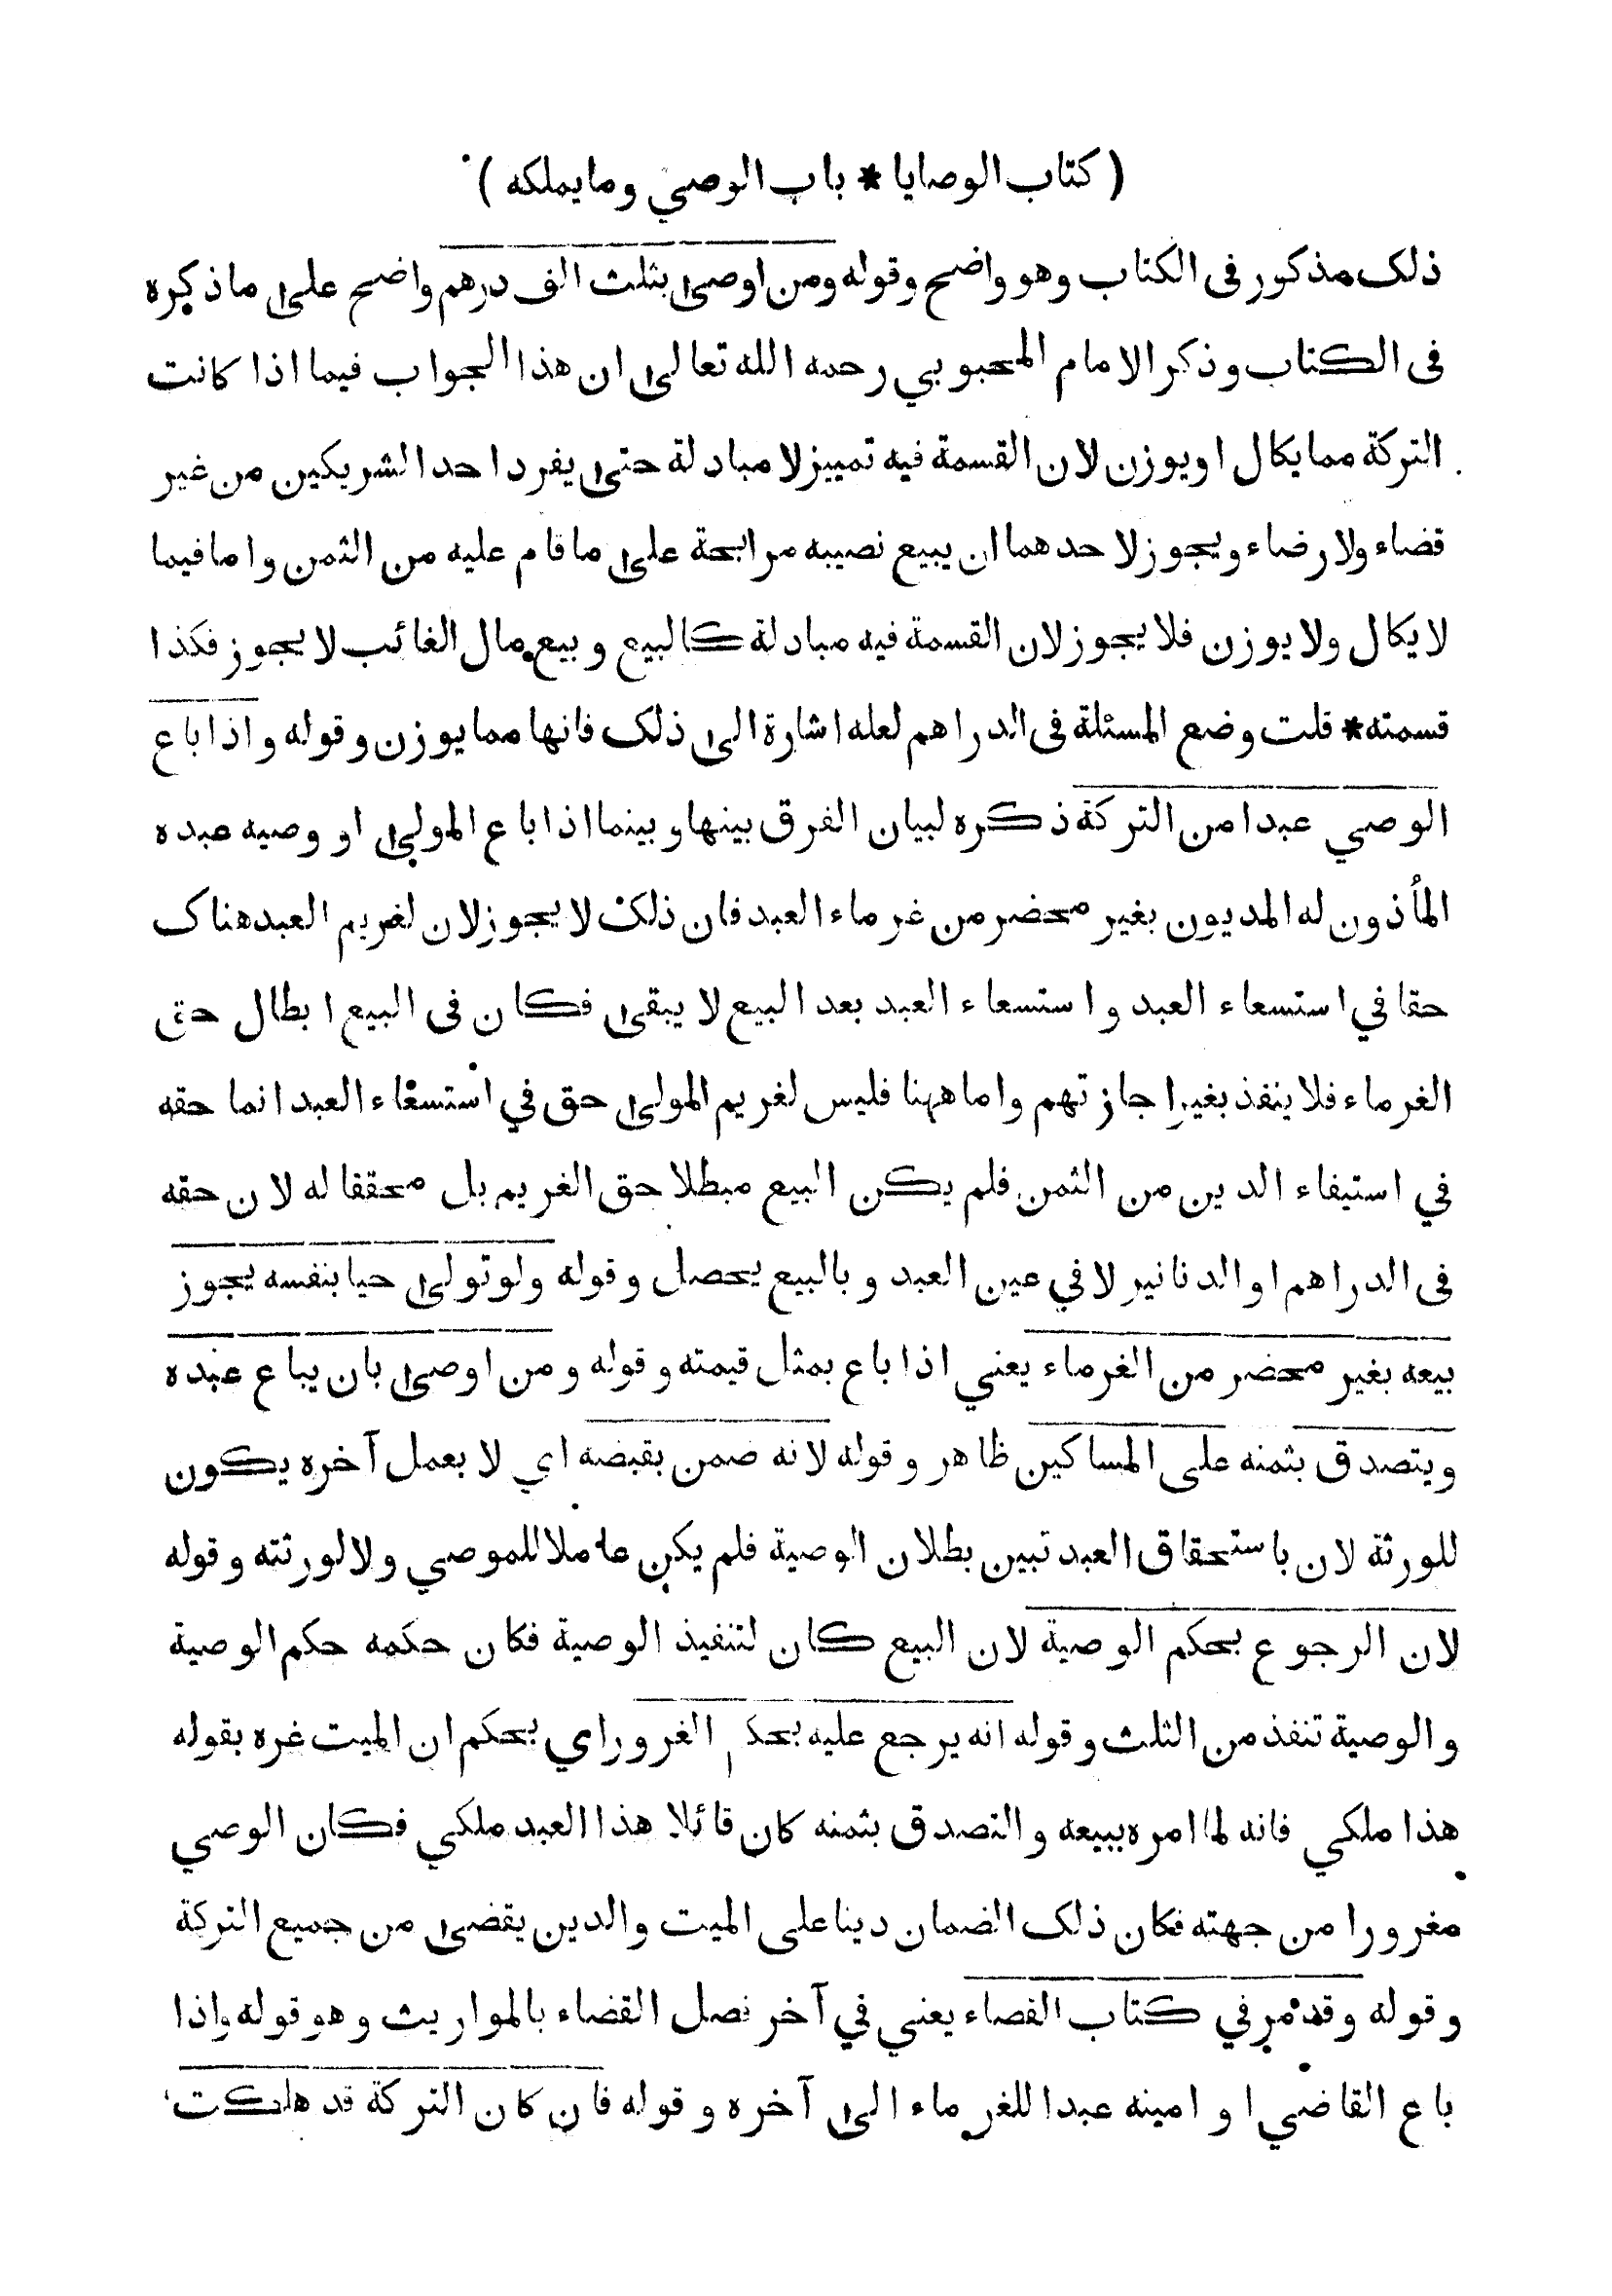 ( كتاب الوصايا * باب الوصي وما يملكه )
ذلك مذكور فى الكتاب وهو واضح وقوله ومن اوصى بثلث الف درهم واضح على ما ذكره
فى الكتاب وذكر الامام المحبوبي رحمه الله تعالى ان هذا الجواب فيما اذا كانت
التركة مما يكال او يوزن لان القسمة فيه تمييز لا مبادلة حتى يفرد احد الشريكين من غير
قضاء ولا رضاء ويجوز لاحدهما ان يبيع نصيبه مرابحة على ما قام عليه من الثمن واما فيما
لا يكال ولا يوزن فلا يجوز لان القسمة فيه مبادلة كالبيع وبيع مال الغائب لا يجوز فكذا
قسمته * قلت وضع المسئلة فى الدراهم لعله اشارة الى ذلك فانها مما يوزن وقوله واذا باع
الوصي عبدا من التركة ذكره لبيان الفرق بينها وبينما اذا باع المولى او وصيه عبده
المأذون له المديون بغير محضر من غرماء العبد فان ذلك لا يجوز لان لغريم العبد هناك
حقا في استسعاء العبد واستسعاء العبد بعد البيع لا يبقى فكان فى البيع ابطال حق
الغرماء فلا ينفذ بغير اجازتهم واما ههنا فليس لغريم المولى حق في استسعاء العبد انما حقه
في استيفاء الدين من الثمن فلم يكن البيع مبطلا حق الغريم بل محققا له لان حقه
فى الدراهم او الدنانير لا في عين العبد وبالبيع يحصل وقوله ولو تولى حيا بنفسه يجوز
بيعه بغير محضر من الغرماء يعني اذا باع بمثل قيمته وقوله ومن اوصى بان يباع عبده
ويتصدق بثمنه على المساكين ظاهر وقوله لانه ضمن بقبضه اي لا بعمل آخره يكون
للورثة لان باستحقاق العبد تبين بطلان الوصية فلم يكن عاملا للموصي ولا لورثته وقوله
لان الرجوع بحكم الوصية لان البيع كان لتنفيذ الوصية فكان حكمه حكم الوصية
والوصية تنفذ من الثلث وقوله انه يرجع عليه بحكم الغرور اي بحكم ان الميت غره بقوله
هذا ملكي فانه لما امره ببيعه والتصدق بثمنه كان قائلا هذا العبد ملكي فكان الوصي
مغرورا من جهته فكان ذلك الضمان دينا على الميت والدين يقضى من جميع التركة
وقوله وقد مر في كتاب القضاء يعني في آخر فصل القضاء بالمواريث وهو قوله واذا
باع القاضي او امينه عبدا للغرماء الى آخره وقوله فان كان التركة قد هلكت